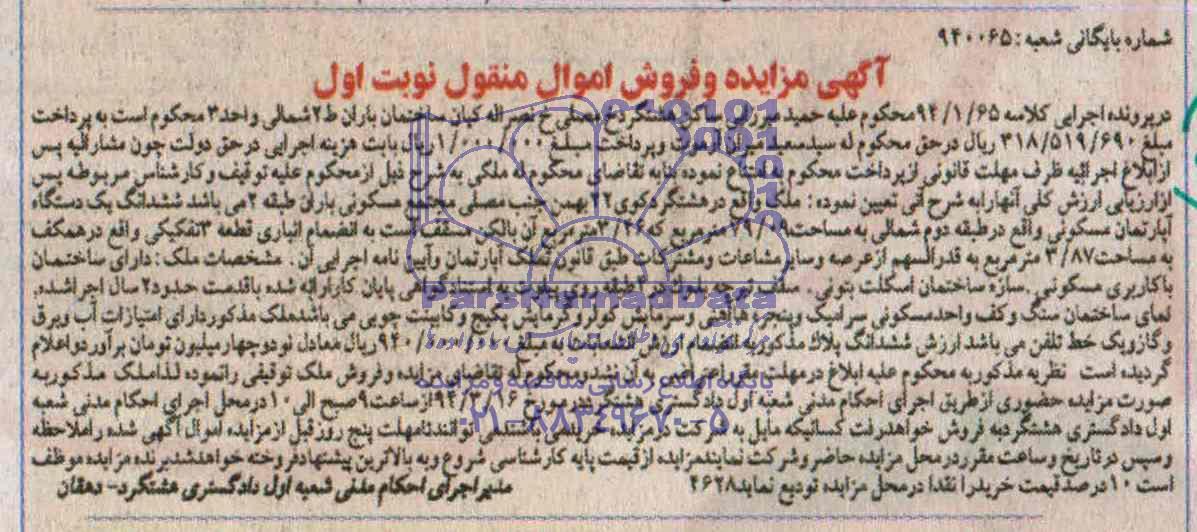 شماره بایگانی شعبه: ۹۴۰۰۶۵
آگهی مزایده وفروش اموال منقول نوبت اول
درپرونده اجرایی کلاسه ۹۴/۱/۶۵محکوم علیه حمید ساکن هشتگرد خ مصلی خ نصراله کیان ساختمان باران ط۲شمالی واحد۳محکوم است به پرداخت
مبلغ ۳۱۸/۵۱۹/۶۹۰ ریال درحق محکوم له سیدسعید وپرداخت مبلغ ۱/۰۰۰/۰۰۰ریال بابت هزینه اجرایی درحق دولت چون مشارالیه پس
ازابلاغ اجرائیه ظرف مهلت قانونی ازپرداخت محکوم به امتناع نموده بنابه تقاضای محکوم له ملکی به شرح ذیل ازمحکوم علیه توقیف وکارشناس مربوطه پس
ازارزیابی ارزش کلی آنهارابه شرح آتی تعیین نموده: ملک واقع درهشتگردکوی۲۲بهمن جنب مصلی مجتمع مسکونی باران طبقه ۲می باشد ششدانگ یک دستگاه
آپارتمان مسکونی واقع درطبقه دوم شمالی به مساحت۷۹/۰۹مترمربع که۳/۲۶مترمربع آن بالکن مسقف است به انضمام انباری قطعه ۳تفکیکی واقع درهمکف
به مساحت۳/۸۷ مترمربع به قدرالسهم ازعرصه وسایر مشاعات ومشترکات طبق قانون تملک آپارتمان وآیین نامه اجرایی آن. مشخصات ملک: دارای ساختمان
باکاربری مسکونی. سازه ساختمان اسکلت بتونی. سقف تیرچه ۴طبقه روی پیلوت به استنادگواهی پایان کارارائه شده باقدمت حدود۲سال اجراشده.
نمای ساختمان سنگ وکف واحدمسکونی سرامیک وپنجره هاآهنی وسرمایش کولر وگرمایش پکیج وکابینت چوبی می باشدملک مذکوردارای امتیازات آب وبرق
وگازویک خط تلفن می باشد ارزش ششدانگ پلاک مذکوربه انضمام ارزش انشعابات به مبلغ ۹۴۰/۰۰۰/۰۰۰ریال معادل نودوچهارمیلیون تومان برآورداعلام
گردیده است نظریه مذکوربه محکوم علیه ابلاغ درمهلت اعتراض به آن نشدومحکوم له تقاضای مزایده وفروش ملک توقیفی رانموده لذاملک مذکوربه
صورت مزایده حضوری ازطریق اجرای احکام مدنی شعبه اول دادگستری هشتگرددرمورخ ۹۴/۳/۱۶ازساعت۹صبح الی۱۰درمحل اجرای احکام مدنی شعبه
اول دادگستری هشتگردبه فروش خواهدرفت کسانیکه مایل به شرکت درمزایده خریدمی باشندمی توانندتامهلت پنج روزقبل ازمزایده اموال آگهی شده راملاحظه
وسپس درتاریخ وساعت مقرردرمحل مزایده حاضروشرکت نمایندمزایده ازقیمت پایه کارشناسی شروع وبه بالاترین پیشنهادفروخته خواهدشدبرنده مزایده موظف
است ۱۰درصدقیمت خریدرا نقدا درمحل مزایده تودیع نماید۴۶۲۸
مدیراجرای احکام مدنی شعبه اول دادگستری هشتگرد- دهقان
ParsNamadData
پایگاه اطلاع رسانی مناقصه ومزایده
۰۲۱-۸۸۳۴۹۶۷۰-۵